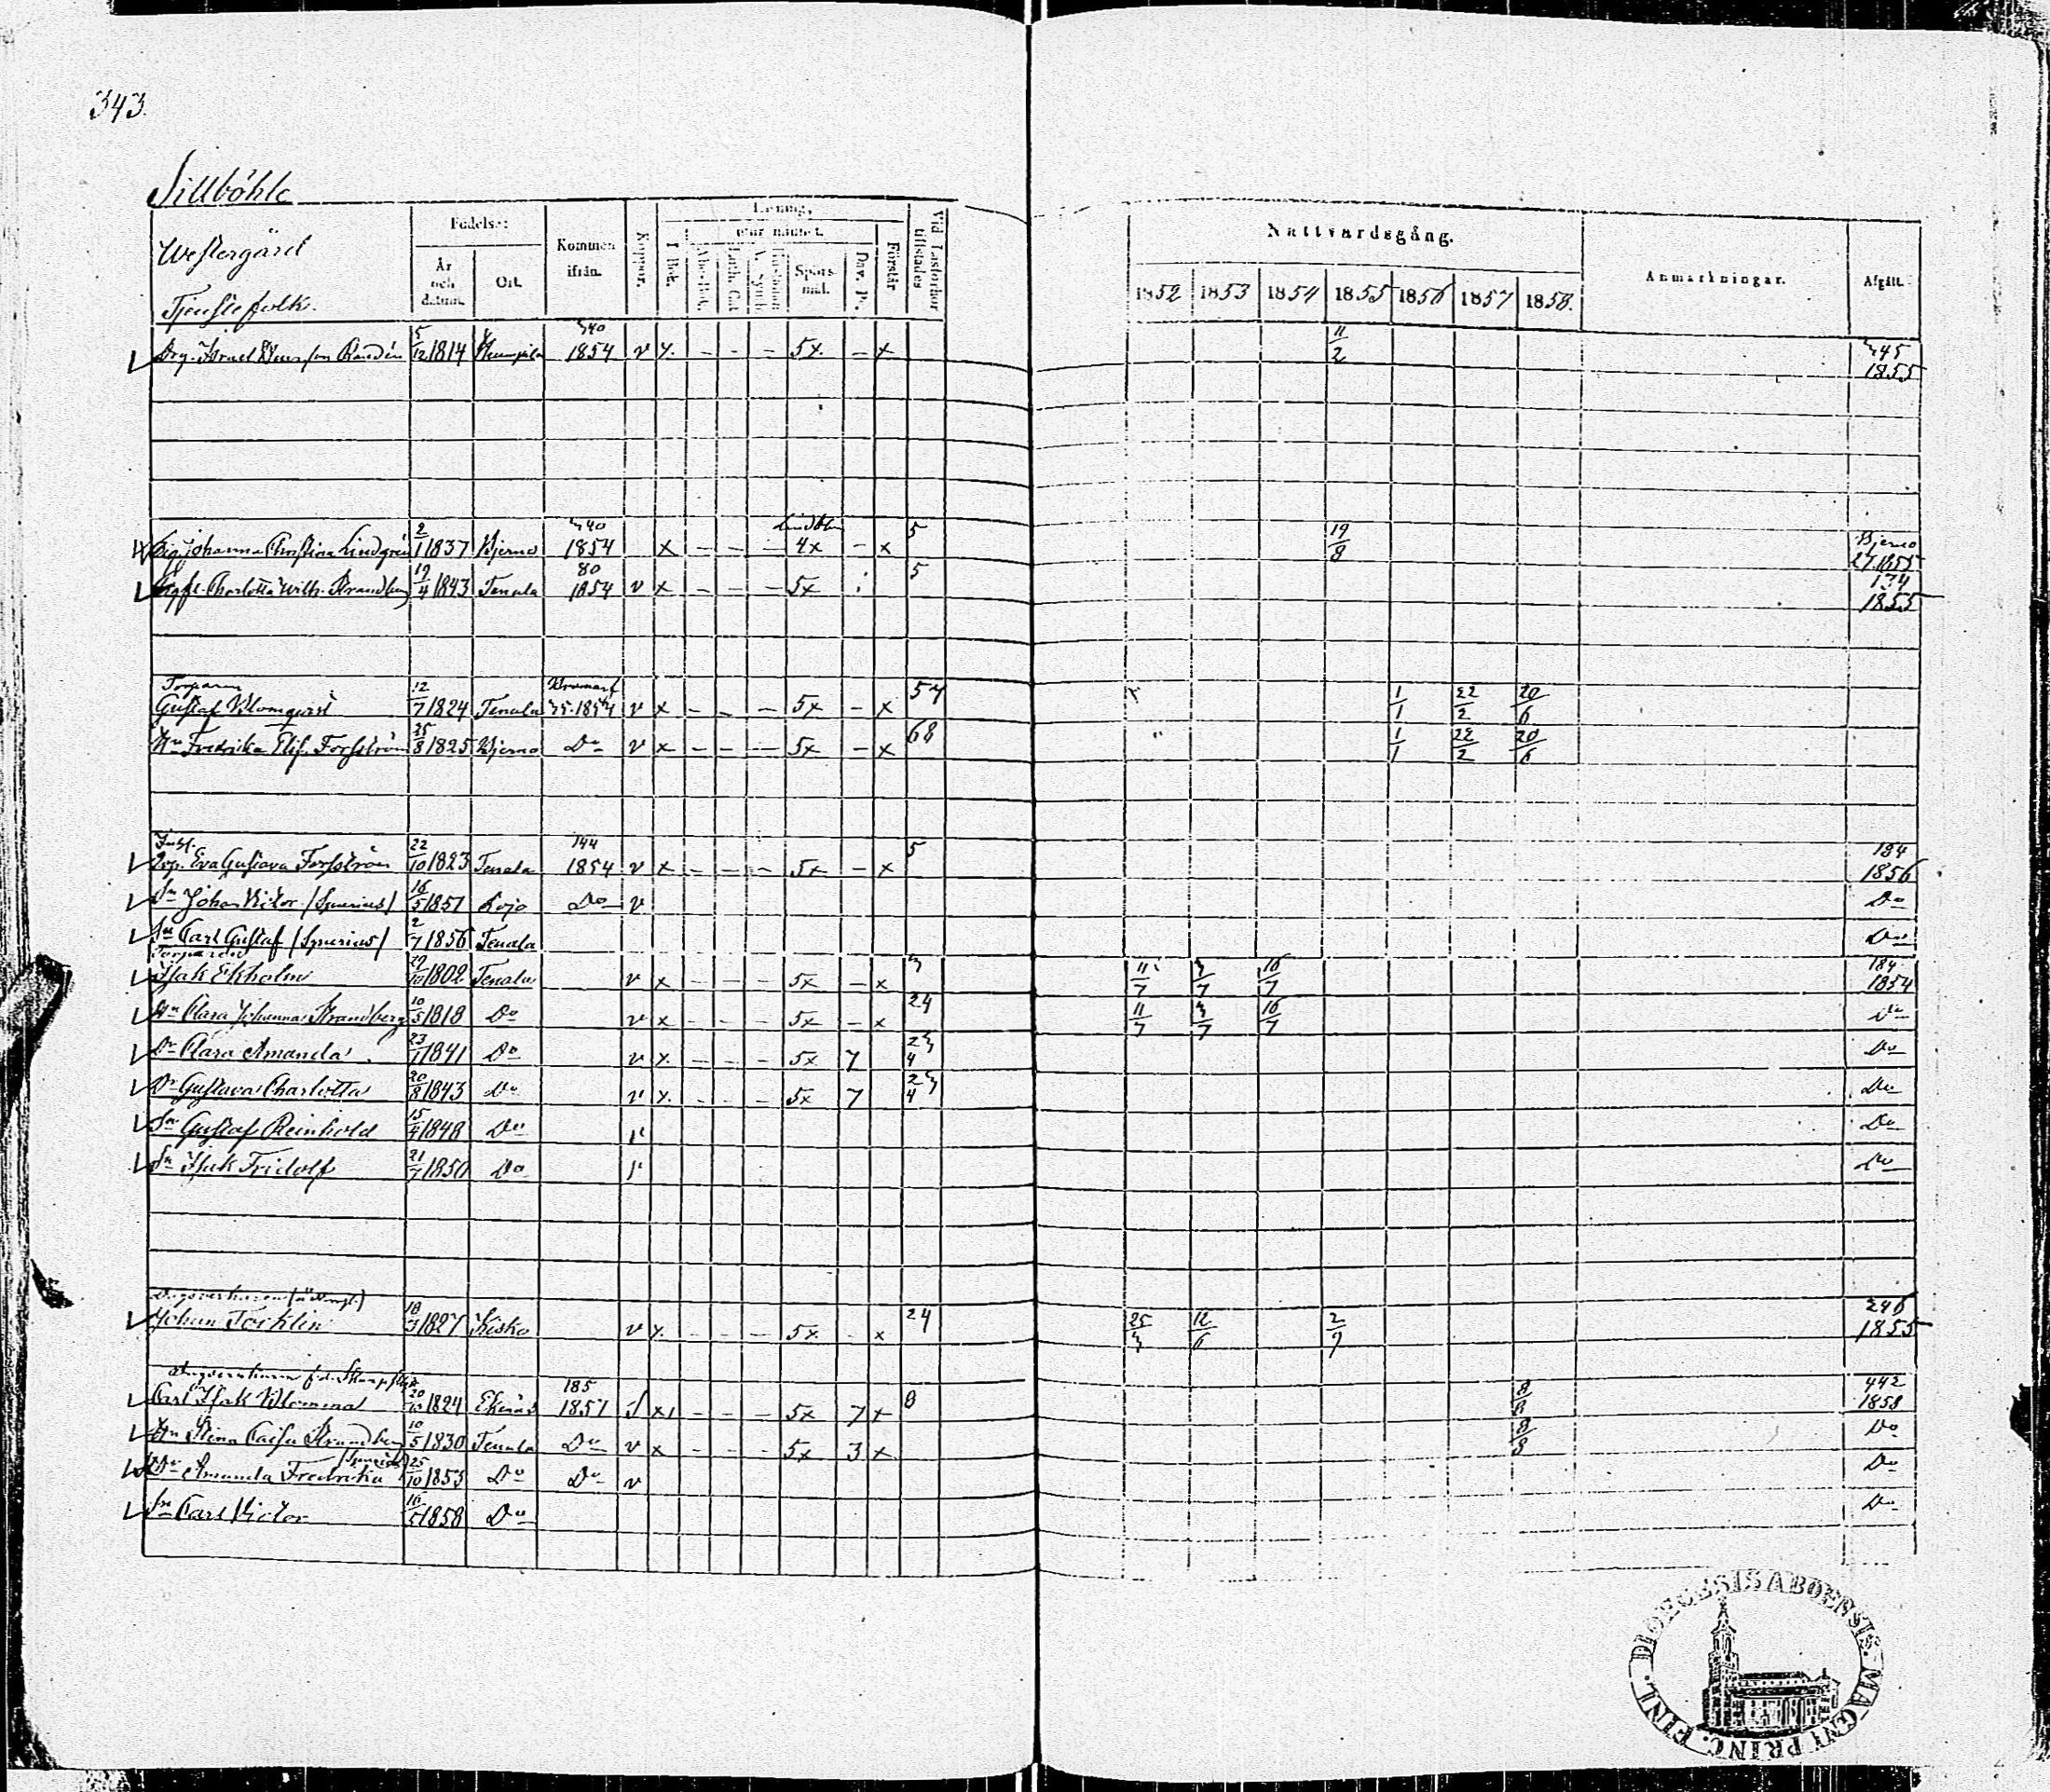 343.
Sillböhle
Westergård
Tjenstefolk.
Födelse: Kommen ifrån. Koppor. Läsning, I Bok. utur minnet. Abc-Bok. Luth. Cat. Spörsmål. Dav. Ps. Förstår Vid Läsförhör tillstädes
År och datum. Ort.
Nattvardsgång. Anmärkningar. Afgått.
1852 1853 1854 1855 1856 1857 1858.
Drg. Israel 5/12 1814 340 1854 v x. - - - 5x. - x 11/2 345 1855
Pig. Johanna Christina Lindgren 2/1 1837 Bjerno 340 1854 x - - - 4x - x 5 19/8 Bjerno 27. 1855
Charlotta Wilh. Strandberg 19/4 1843 Tenala 80 1854 v x - - - 5x 5 134 1855
Torparen
Gustaf Blomqvist 12/7 1824 Tenala Bromarf 1854 v x - - - 5x - x 57 1/1 22/2 20/6
Hu Fredrika Elis. Forsström 25/8 1825 Bjerno Do v x - - - 5x - x 68 " 1/1 22/2 20/6
Inh.
Eva Gustava Forsström 22/10 1823 Tenala 144 1854 v x - - - 5x - x 5 184 1856
Sn Johan Victor (Spurius) 16/5 1851 Lojo Do v Do
Sn Carl Gustaf (Spurius) 2/7 1856 Tenala Do
Torparen
Isak Ekholm 29/10 1802 Tenala v x - - - 5x - x 3 11/7 3/7 16/7 184 1854
Hn Clara Johanna Strandberg 10/5 1818 Do v x - - - 5x - x 24 11/7 3/7 16/7 Do
Dr Clara Amanda 23/1 1841 Do v x. - - - 5x 7 23 4 Do
Dr Gustava Charlotta 20/8 1843 Do v x. - - - 5x 7 23 4 Do
Sn Gustaf Reinhold 15/4 1848 Do v Do
Sn Isak Fridolf 21/7 1850 Do v Do
Johan Töcklin 18/3 1827 Kisko v x. - - - 5x - x 24 25/3 12/6 2/9 246 1855
Carl Isak 20/10 1824 Ekenäs 185 1857 x - - - 5x 7 x 8 8/8 442 1858
Hn Stina Caisa Strandberg 10/5 1830 Tenala Do v x - - - 5x 3 x 8/8 Do
Dr Amanda Fredrika 25/10 1853 Do Do v Do
Sn Carl Victor 16/5 1858 Do Do
DIOECESIS ABOENSIS. MAGNI PRINC. FINL.